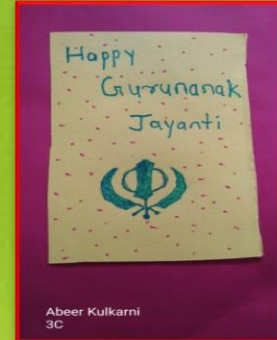 Happy
Gurunanak
Jayanti
Abeer Kulkarni
3C